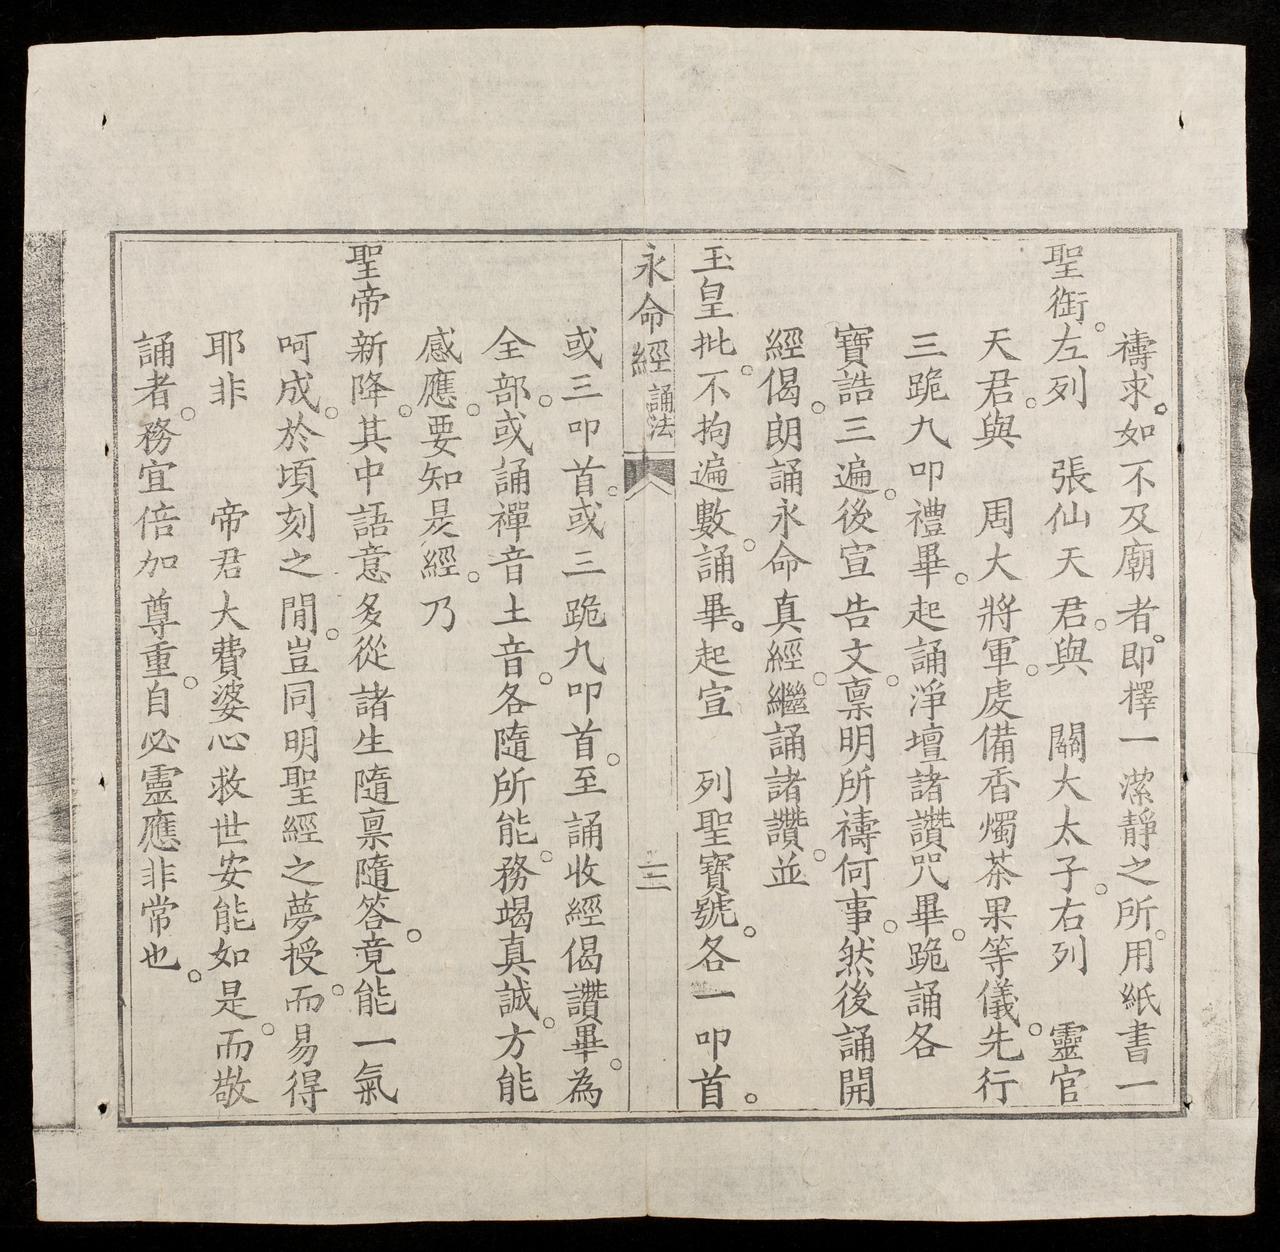 禱求。如不及廟者。即擇一潔靜之所。用紙書一
聖銜。左列　張仙天君。與　關大太子。右列　靈官
天君。與　周大將軍。虔備香燭茶果等儀。先行
三跪九叩禮畢。起誦淨壇諸讚咒畢。跪誦各
寶誥三遍。後宣告文。禀明所禱何事。然後誦開
經偈。朗誦永命真經。繼誦諸讚。並
玉皇批。不拘遍數。誦畢。起宣　列聖寶號。各一叩首。
永命經　誦法　三
或三叩首。或三跪九叩首。至誦收經偈讚畢。為
全部。或誦禪音土音。各隨所能。務竭真誠。方能
感應。要知是經。乃
聖帝新降。其中語意多從諸生隨禀隨答。竟能一氣
呵成。於頃刻之間。豈同明聖經之夢授。而易得
耶非　帝君大費婆心救世安能如是。而敬
誦者。務宜倍加尊重。自必靈應非常也。